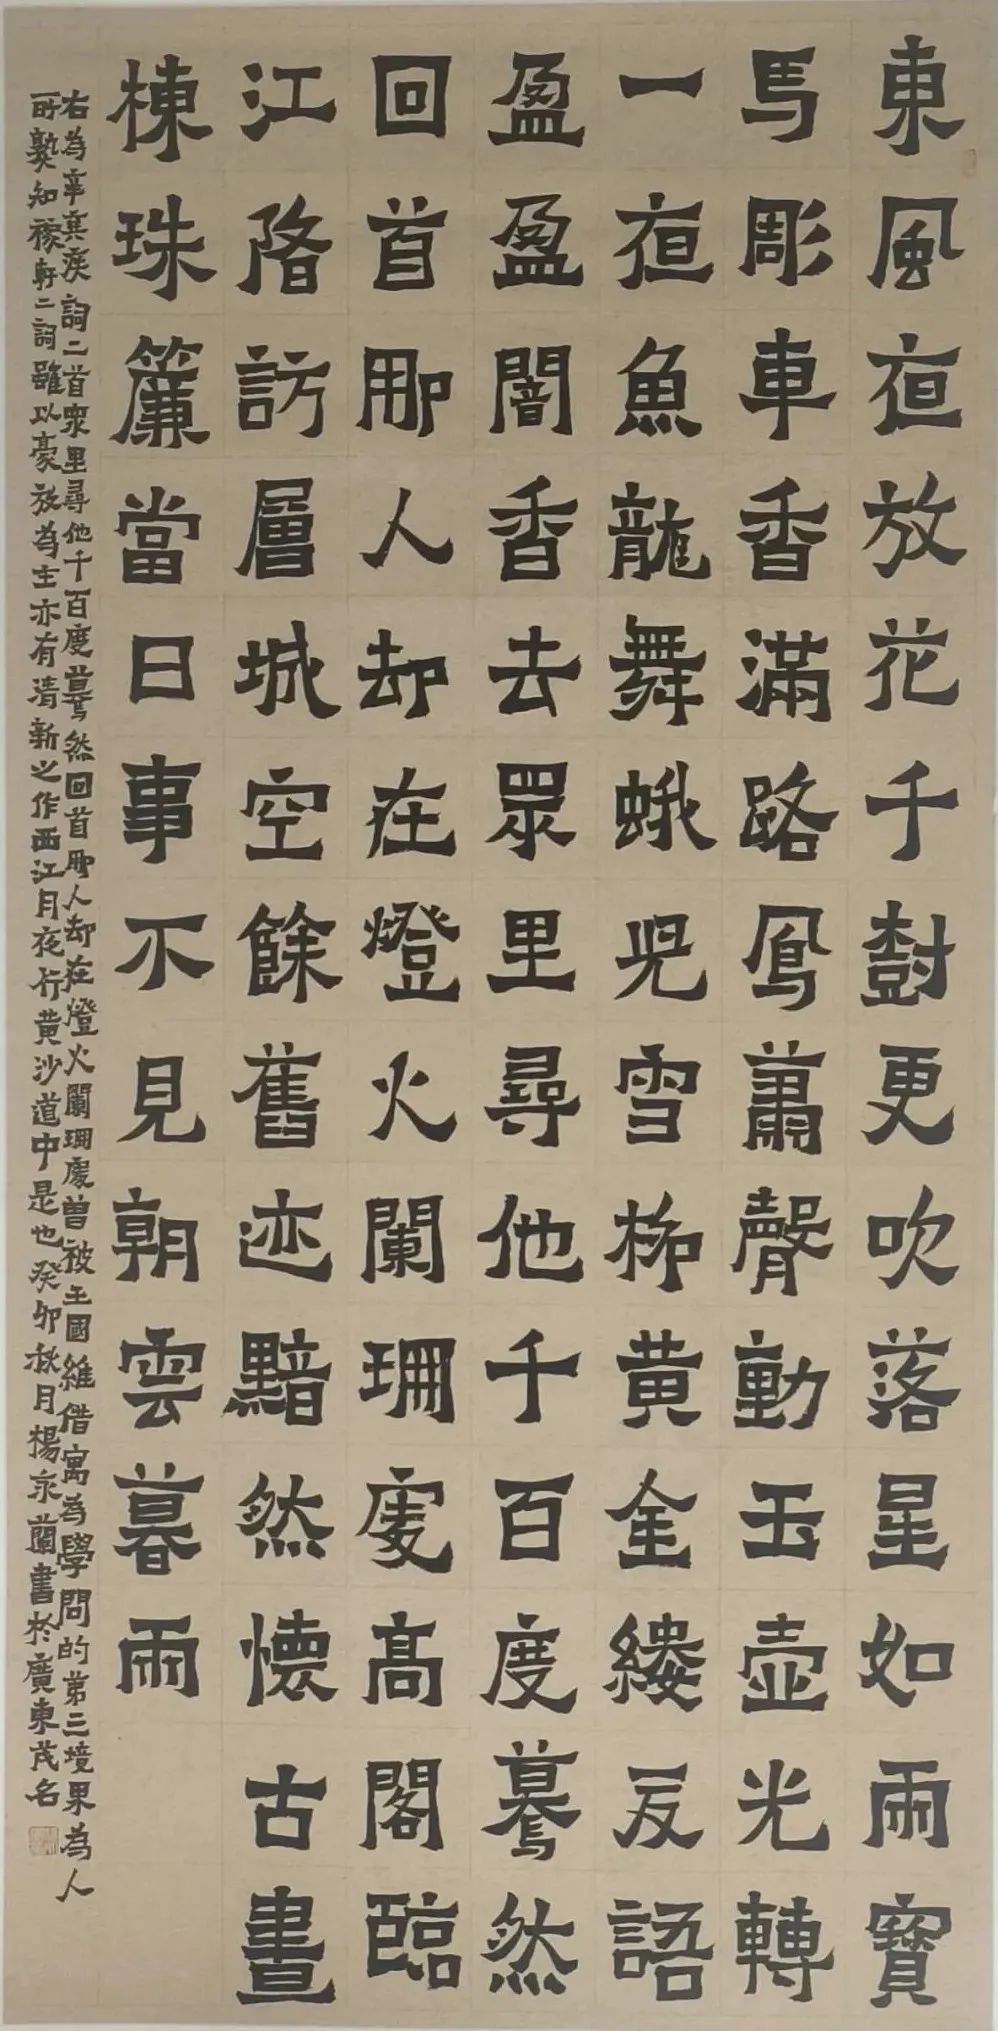 東風夜放花千樹更吹落星如雨寶
馬彫車香滿路鳳蕭聲動玉壺光轉
一夜魚龍舞蛾兒雪柳黃金縷友語
盈盈闇香去眾里尋他千百度驀然
回首那人却在燈火闌珊處高閣臨
江階訪層城空餘舊迹黯然懷古畫
棟珠簾當日事不見朝雲暮雨
右為辛棄疾詞二首衆里尋他千百度驀然回首那人却在燈火闌珊處曾被王國維借寓為學問的第三境界為人
所熟知稼軒二詞雖以豪放為主亦有清新之作西江月夜行黄沙道中是也癸卯秋月楊永蘭書於廣東茂名